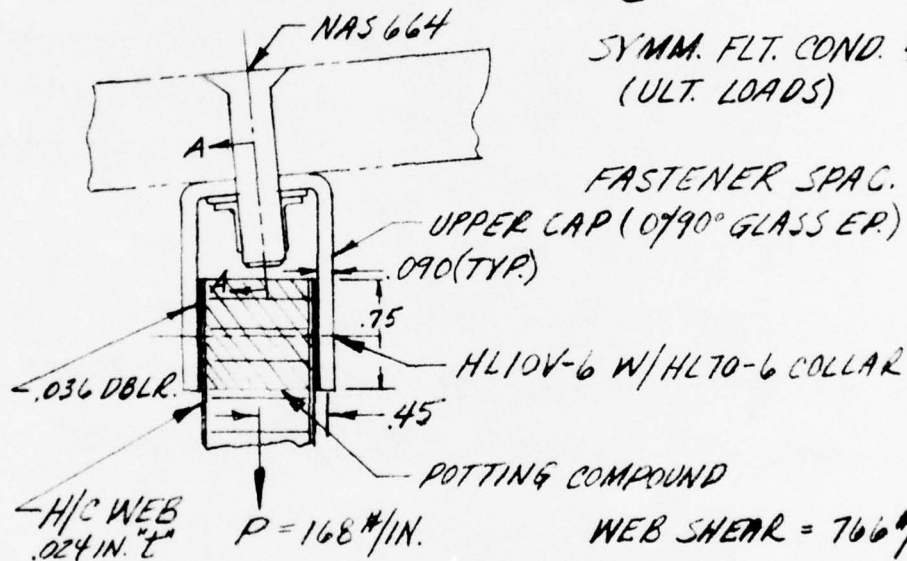 NAS 664
SYMM. FLT. COND.
(ULT. LOADS)
A
FASTENER SPAC.
UPPER CAP (0/90° GLASS EP.)
.090 (TYP.)
A
.75
HL10V-6 W/HL70-6 COLLAR
.036 DBLR.
.45
POTTING COMPOUND
H/C WEB
.024 IN. "t"
P = 168 #/IN.
WEB SHEAR = 766 #/